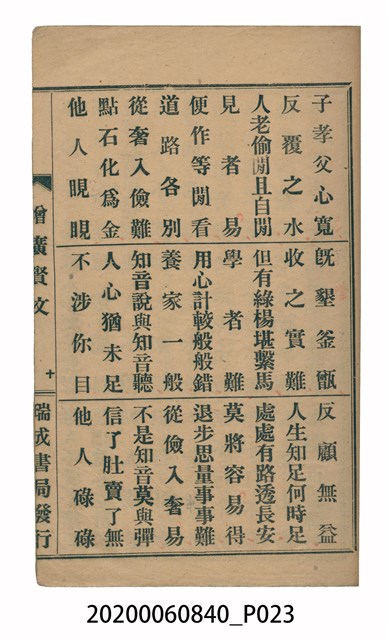 子孝父心寬 旣墾釜甑 反顧無益
反覆之水 收之實難 人生知足何時足
人老偷閒且自閒 但有綠楊堪繫馬 處處有路透長安
見者易 學者難 莫將容易得
便作等閒看 用心計較般般錯 退步思量事事難
道路各別 養家一般 從儉入奢易
從奢入儉難 知音說與知音聽 不是知音莫與彈
點石化爲金 人心猶未足 信了肚賣了無
他人睍睍 不涉你目 他人碌碌
增廣賢文 十 瑞成書局發行
20200060840_P023